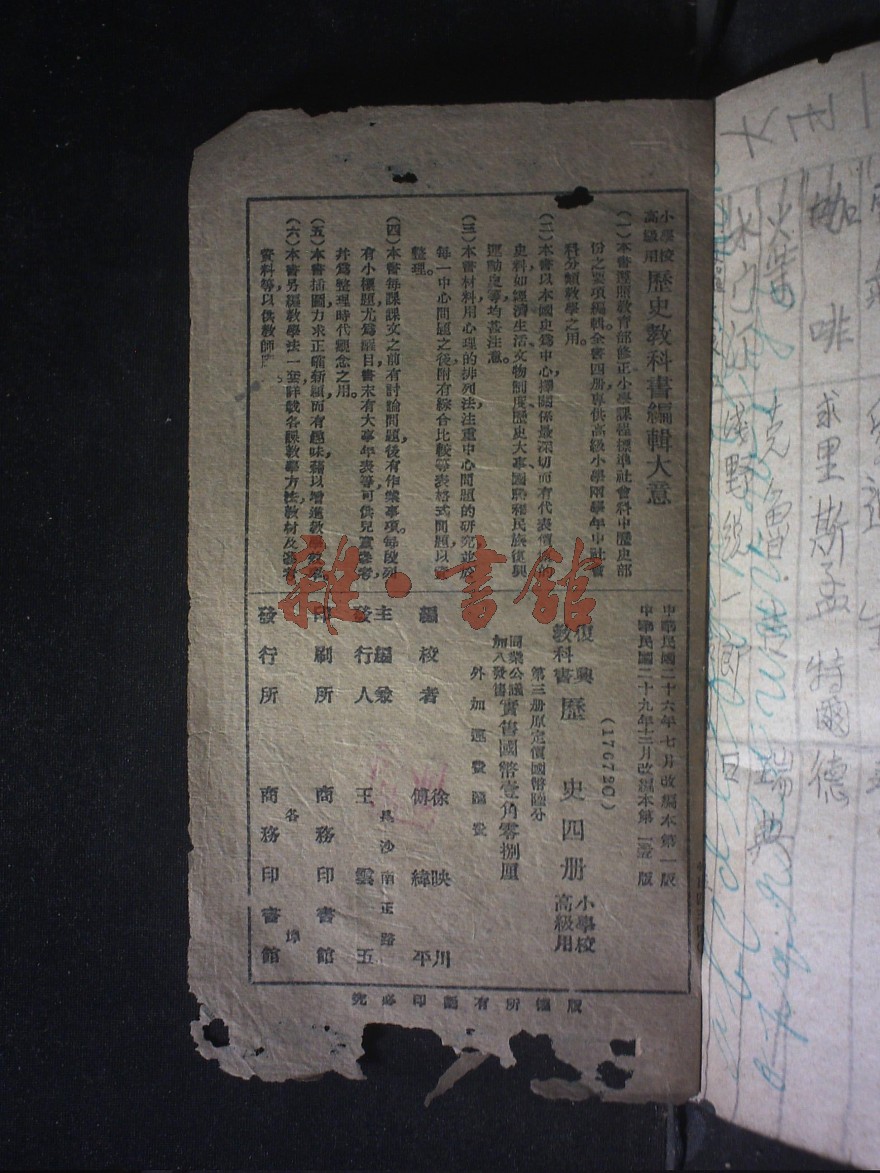 小學校
高級用
歷史教科書編輯大意
(一)本書遵照教育部修正小學課程標準社會科中歷史部
份之要項編輯全書四册專供高級小學兩學年中社會
科分類教學之用。
(二)本書以本國史爲中心擇關係最深切而有代表價
史料如經濟生活文物制度歷史大事國恥和民族復興
運動史等均甚注意。
(三)本書材料用心理的排列法注重中心問題的研究並於
每一中心問題之後附有綜合比較等表格式問題以
整理。
(四)本書每課課文之前有討論問題,後有作業事項。每段列
有小標題尤爲醒目書末有大事年表等可供兒童參考
幷爲整理時代觀念之用。
(五)本書插圖力求正確新穎而有趣味藉以增進教學
(六)本書另編教學法一套詳載各課教學方法教材及
資料等以供教師
中華民國二十六年七月改編本第一版
中華民國二十九年十二月改編本第 版
(17672C)
復興
教科書
歷史四册
小學校
高級用
第三册原定價國幣陸分
同業公議
加八發售
實售國幣壹角零捌厘
外加運費匯費
編校者
徐映川
傅緯平
主編兼
發行人
王雲五
長沙南正路
印刷所
商務印書館
發行所
各埠
商務印書館
版權所有翻印必究
雜·書館
咖啡
求里斯
特爾德
火柴
克魯
瑞典
淺野